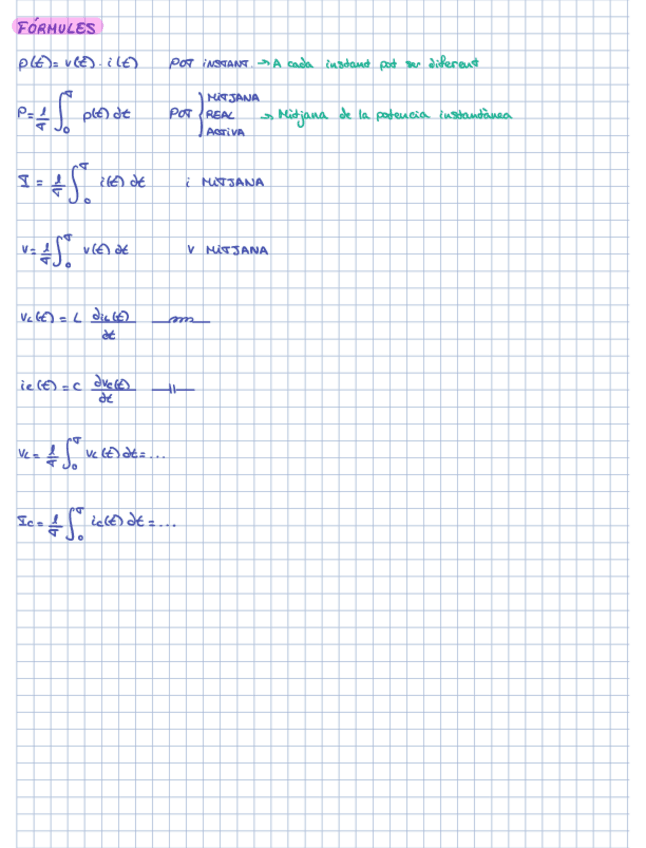 FÓRMULES
p(t) = v(t) · i(t) POT INSTANT. → A cada instant pot ser diferent
P = 1/T ∫₀ᵀ p(t) dt POT { MITJANA
REAL → Mitjana de la potencia instantànea
ACTIVA
I = 1/T ∫₀ᵀ i(t) dt i MITJANA
V = 1/T ∫₀ᵀ v(t) dt V MITJANA
VL(t) = L ∂iL(t)/∂t
ic(t) = C ∂Vc(t)/∂t
VL = 1/T ∫₀ᵀ VL(t) ∂t = ...
Ic = 1/T ∫₀ᵀ ic(t) ∂t = ...